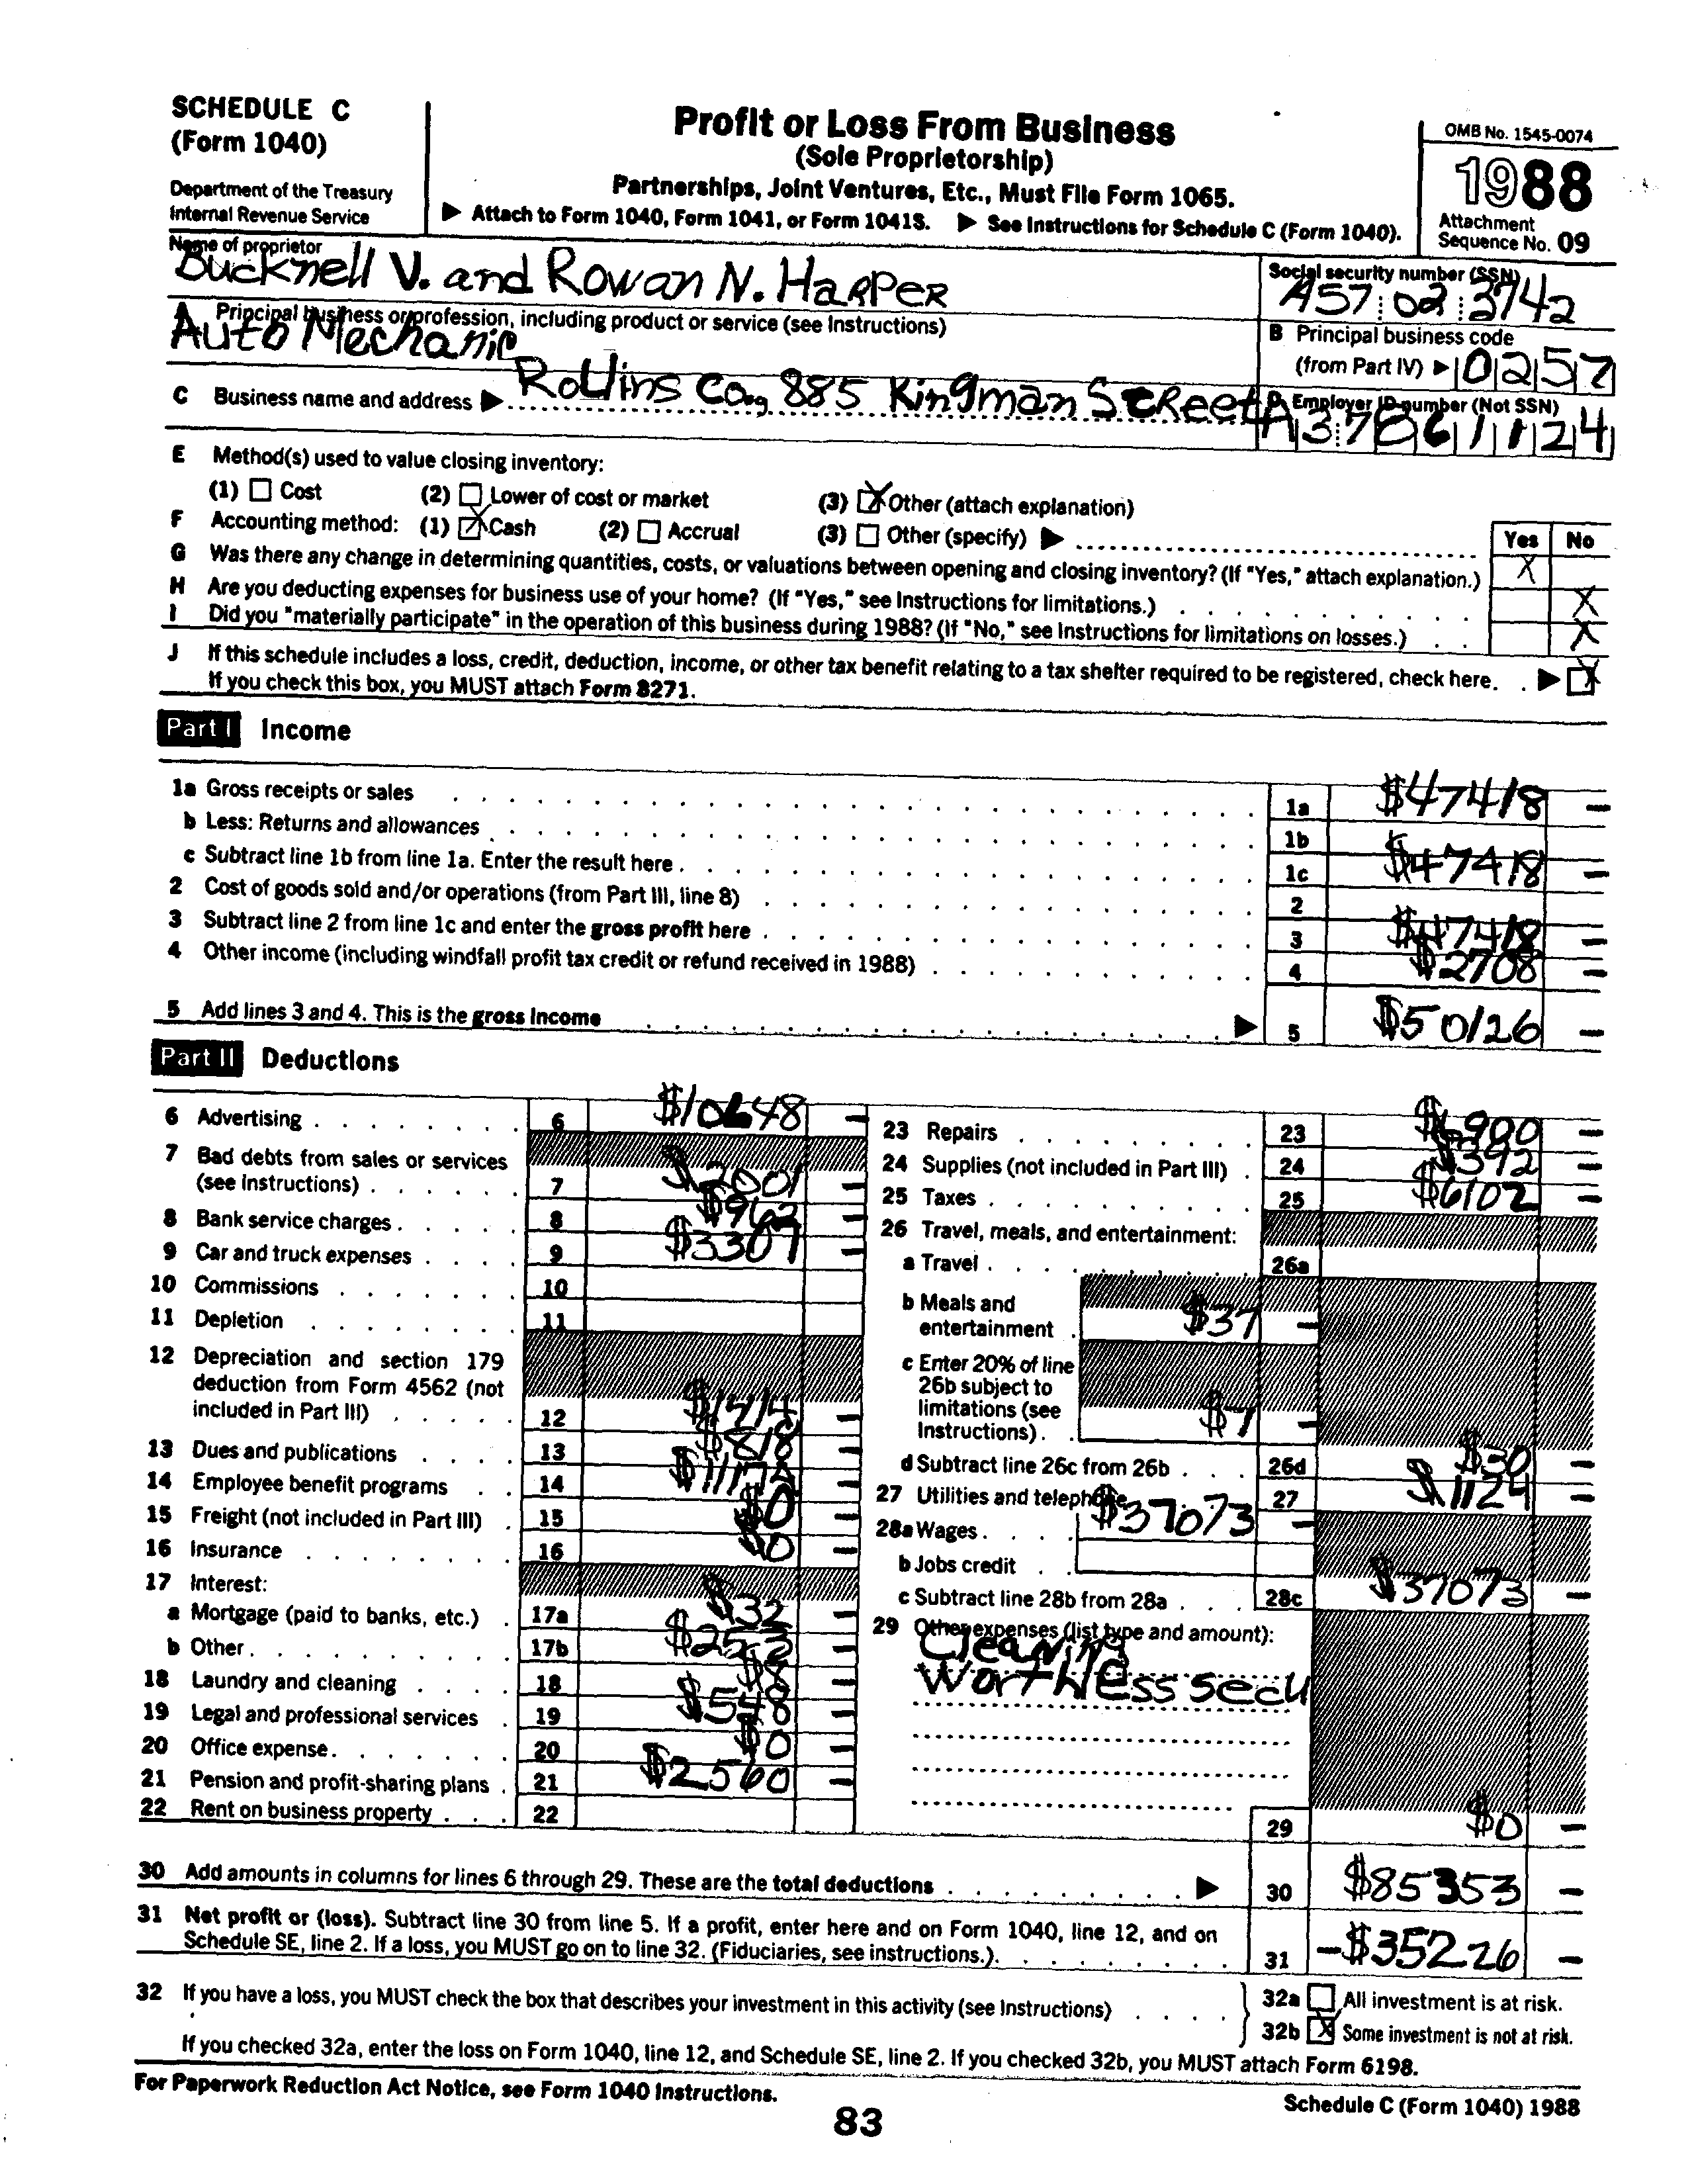 SCHEDULE C
(Form 1040)
Department of the Treasury
Internal Revenue Service
Profit or Loss From Business
(Sole Proprietorship)
Partnerships, Joint Ventures, Etc., Must File Form 1065.
▶ Attach to Form 1040, Form 1041, or Form 1041S. ▶ See Instructions for Schedule C (Form 1040).
OMB No. 1545-0074
1988
Attachment
Sequence No. 09
Name of proprietor
Bucknell V. and Rowan N. Harper
Social security number (SSN)
A57 02 3742
A Principal business or profession, including product or service (see Instructions)
Auto Mechanic
B Principal business code
(from Part IV) ▶ 0257
C Business name and address ▶ Rollins Co., 885 Kingman Street
D Employer ID number (Not SSN)
A37061124
E Method(s) used to value closing inventory:
(1) Cost (2) Lower of cost or market (3) X Other (attach explanation)
F Accounting method: (1) X Cash (2) Accrual (3) Other (specify) ▶
Yes No
G Was there any change in determining quantities, costs, or valuations between opening and closing inventory? (If "Yes," attach explanation.) X
H Are you deducting expenses for business use of your home? (If "Yes," see Instructions for limitations.) X
I Did you "materially participate" in the operation of this business during 1988? (If "No," see Instructions for limitations on losses.) X
J If this schedule includes a loss, credit, deduction, income, or other tax benefit relating to a tax shelter required to be registered, check here. ▶ X
If you check this box, you MUST attach Form 8271.
Part I Income
1a Gross receipts or sales 1a $47418 –
b Less: Returns and allowances 1b
c Subtract line 1b from line 1a. Enter the result here 1c $47418 –
2 Cost of goods sold and/or operations (from Part III, line 8) 2
3 Subtract line 2 from line 1c and enter the gross profit here 3 $47418 –
4 Other income (including windfall profit tax credit or refund received in 1988) 4 $2708 –
5 Add lines 3 and 4. This is the gross income ▶ 5 $50126 –
Part II Deductions
6 Advertising 6 $10648 –
7 Bad debts from sales or services
(see Instructions) 7 –
8 Bank service charges 8 $963 –
9 Car and truck expenses 9 $3307 –
10 Commissions 10
11 Depletion 11
12 Depreciation and section 179
deduction from Form 4562 (not
included in Part III) 12 –
13 Dues and publications 13 $818 –
14 Employee benefit programs 14 –
15 Freight (not included in Part III) 15 $0 –
16 Insurance 16 $0 –
17 Interest:
a Mortgage (paid to banks, etc.) 17a $32 –
b Other 17b –
18 Laundry and cleaning 18 $8 –
19 Legal and professional services 19 $548 –
20 Office expense 20 $0 –
21 Pension and profit-sharing plans 21 $2560 –
22 Rent on business property 22
23 Repairs 23 –
24 Supplies (not included in Part III) 24 $392 –
25 Taxes 25 $6102 –
26 Travel, meals, and entertainment:
a Travel 26a
b Meals and
entertainment $37 –
c Enter 20% of line
26b subject to
limitations (see
Instructions) $7 –
d Subtract line 26c from 26b 26d $30 –
27 Utilities and telephone 27 –
28a Wages $37073 –
b Jobs credit
c Subtract line 28b from 28a 28c $37073 –
29 Other expenses (list type and amount):
Cleaning
Worthless secu
29 $0 –
30 Add amounts in columns for lines 6 through 29. These are the total deductions ▶ 30 $85353 –
31 Net profit or (loss). Subtract line 30 from line 5. If a profit, enter here and on Form 1040, line 12, and on
Schedule SE, line 2. If a loss, you MUST go on to line 32. (Fiduciaries, see instructions.) 31 -$35226 –
32 If you have a loss, you MUST check the box that describes your investment in this activity (see Instructions)
32a All investment is at risk.
32b X Some investment is not at risk.
If you checked 32a, enter the loss on Form 1040, line 12, and Schedule SE, line 2. If you checked 32b, you MUST attach Form 6198.
For Paperwork Reduction Act Notice, see Form 1040 Instructions.
Schedule C (Form 1040) 1988
83